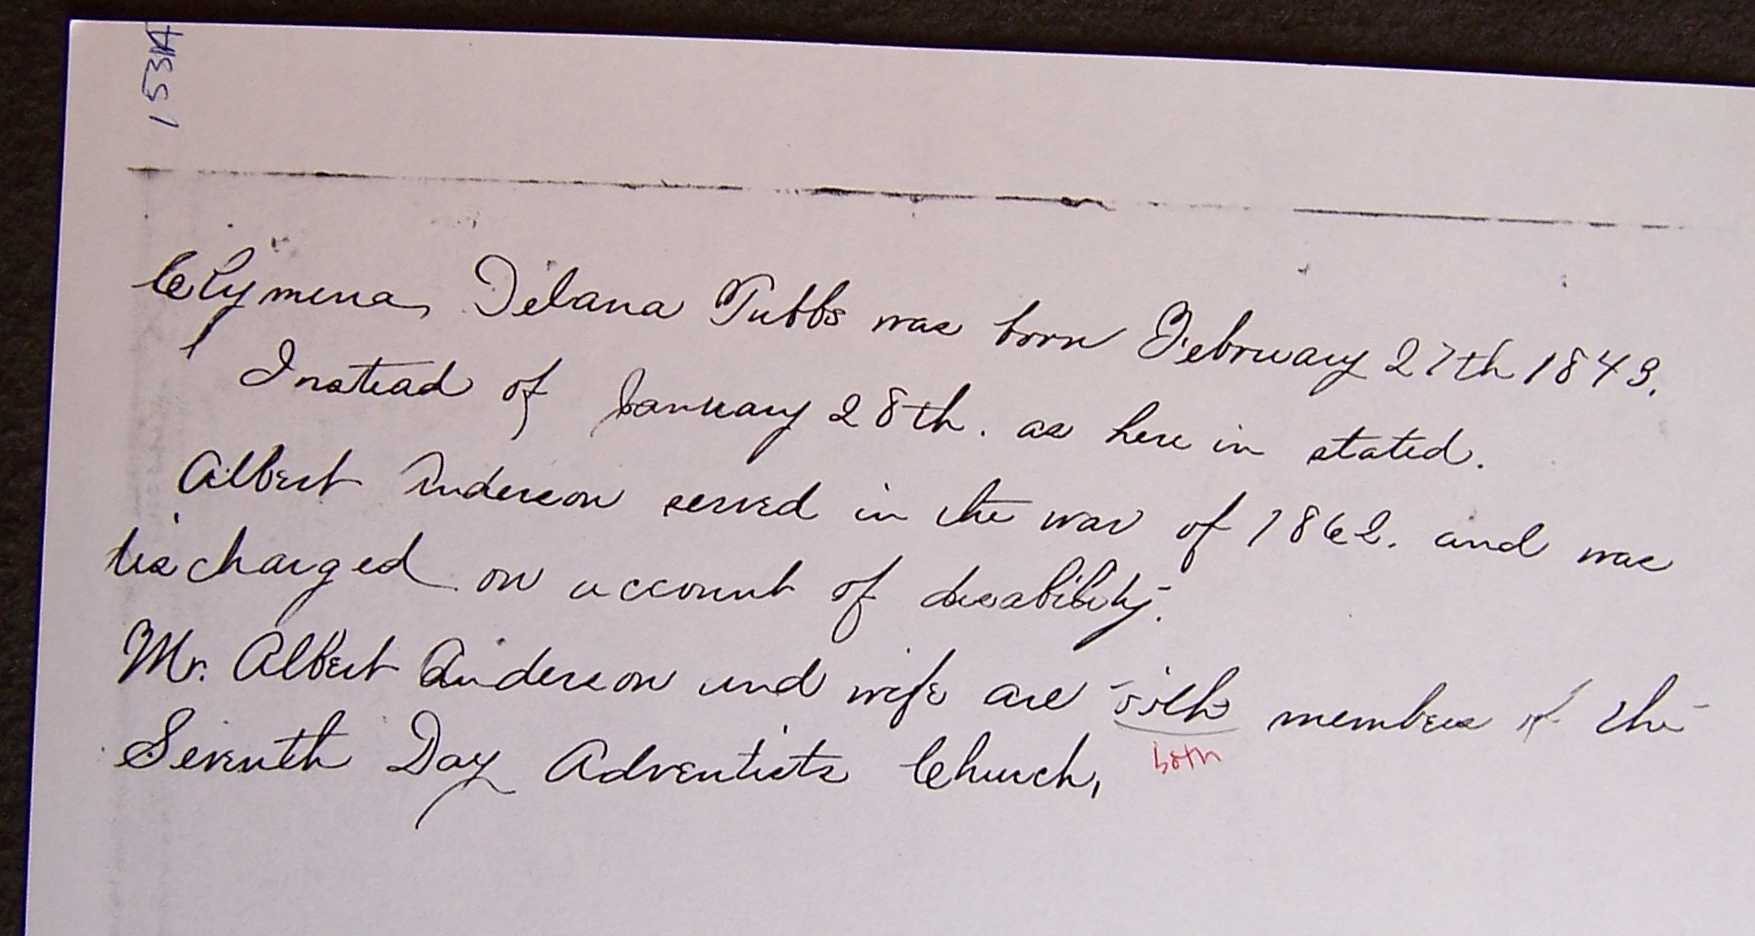 153A
Clymena Delana Tubbs was born February 27th 1843.
Instead of January 28th. as here in stated.
Albert Anderson served in the war of 1862. and was
discharged on account of disability.
Mr. Albert Anderson and wife are both members of the
both
Seventh Day Adventists Church,